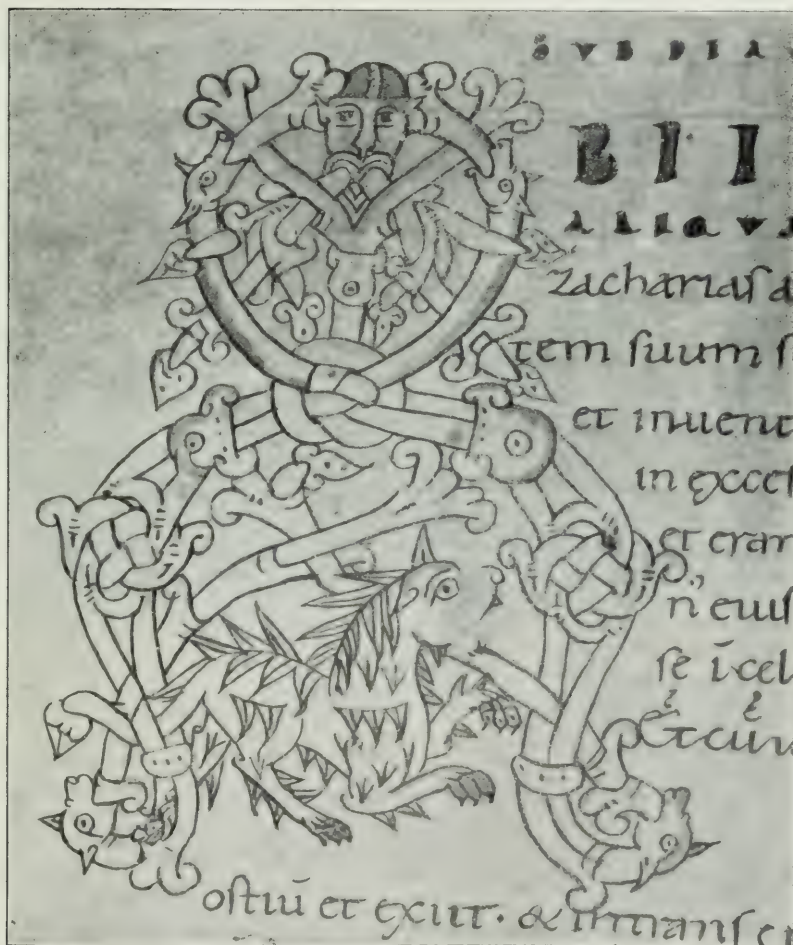 SVB DIA
BII
ALIQVA
zachariaſ a
tem ſuum ſ
et inuenit
in exceſ
et eran
n̄ eiuſ
ſe ī cel
Et cum
oſtiū et exiit. & inmanſe